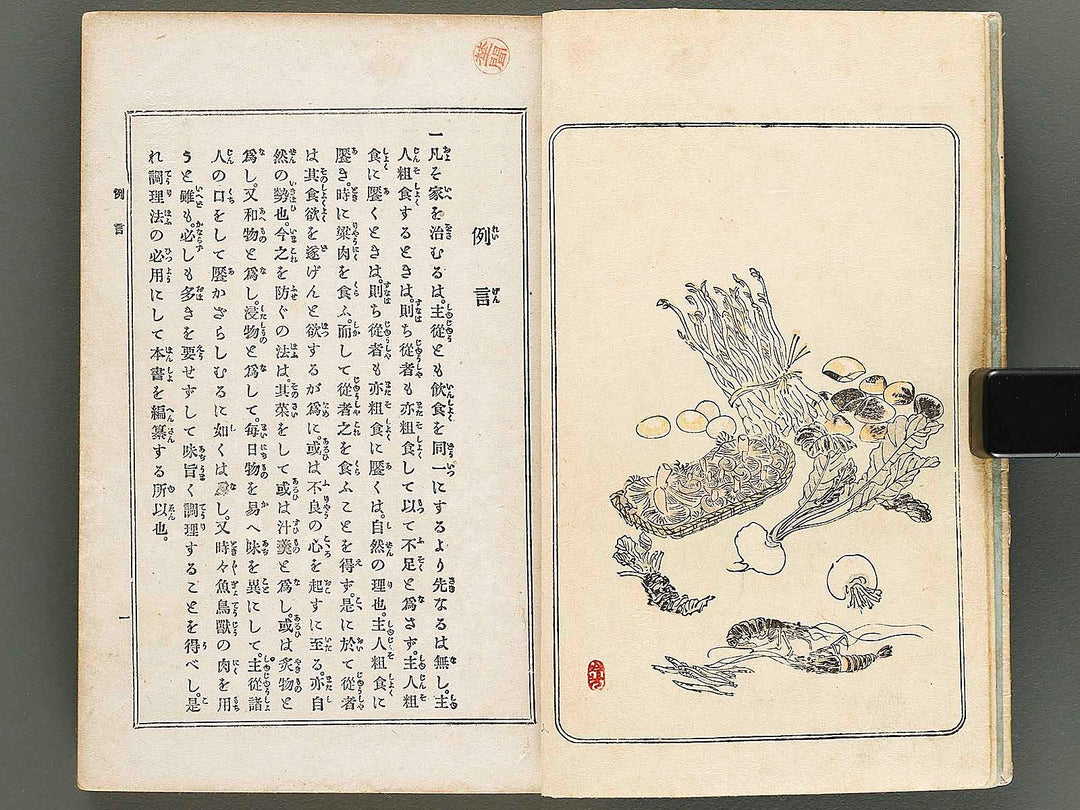 例言
一凡そ家を治むるは。主從とも飮食を同一にするより先なるは無し。主
人粗食するときは。則ち從者も亦粗食して以て不足と爲さず。主人粗
食に饜くときは。則ち從者も亦粗食に饜くは。自然の理也。主人粗食に
饜き。時に粱肉を食ふ。而して從者之を食ふことを得ず。是に於て從者
は其食欲を遂げんと欲するが爲に。或は不良の心を起すに至る。亦自
然の勢也。今之を防ぐの法は。其菜をして或は汁羹と爲し。或は炙物と
爲し。又和物と爲し。浸物と爲して。每日物を易へ味を異にして。主從諸
人の口をして饜かざらしむるに如くは無し。又時々魚鳥獸の肉を用
うと雖も。必しも多きを要せずして味旨く調理することを得べし。是
れ調理法の必用にして本書を編纂する所以也。
例言
一